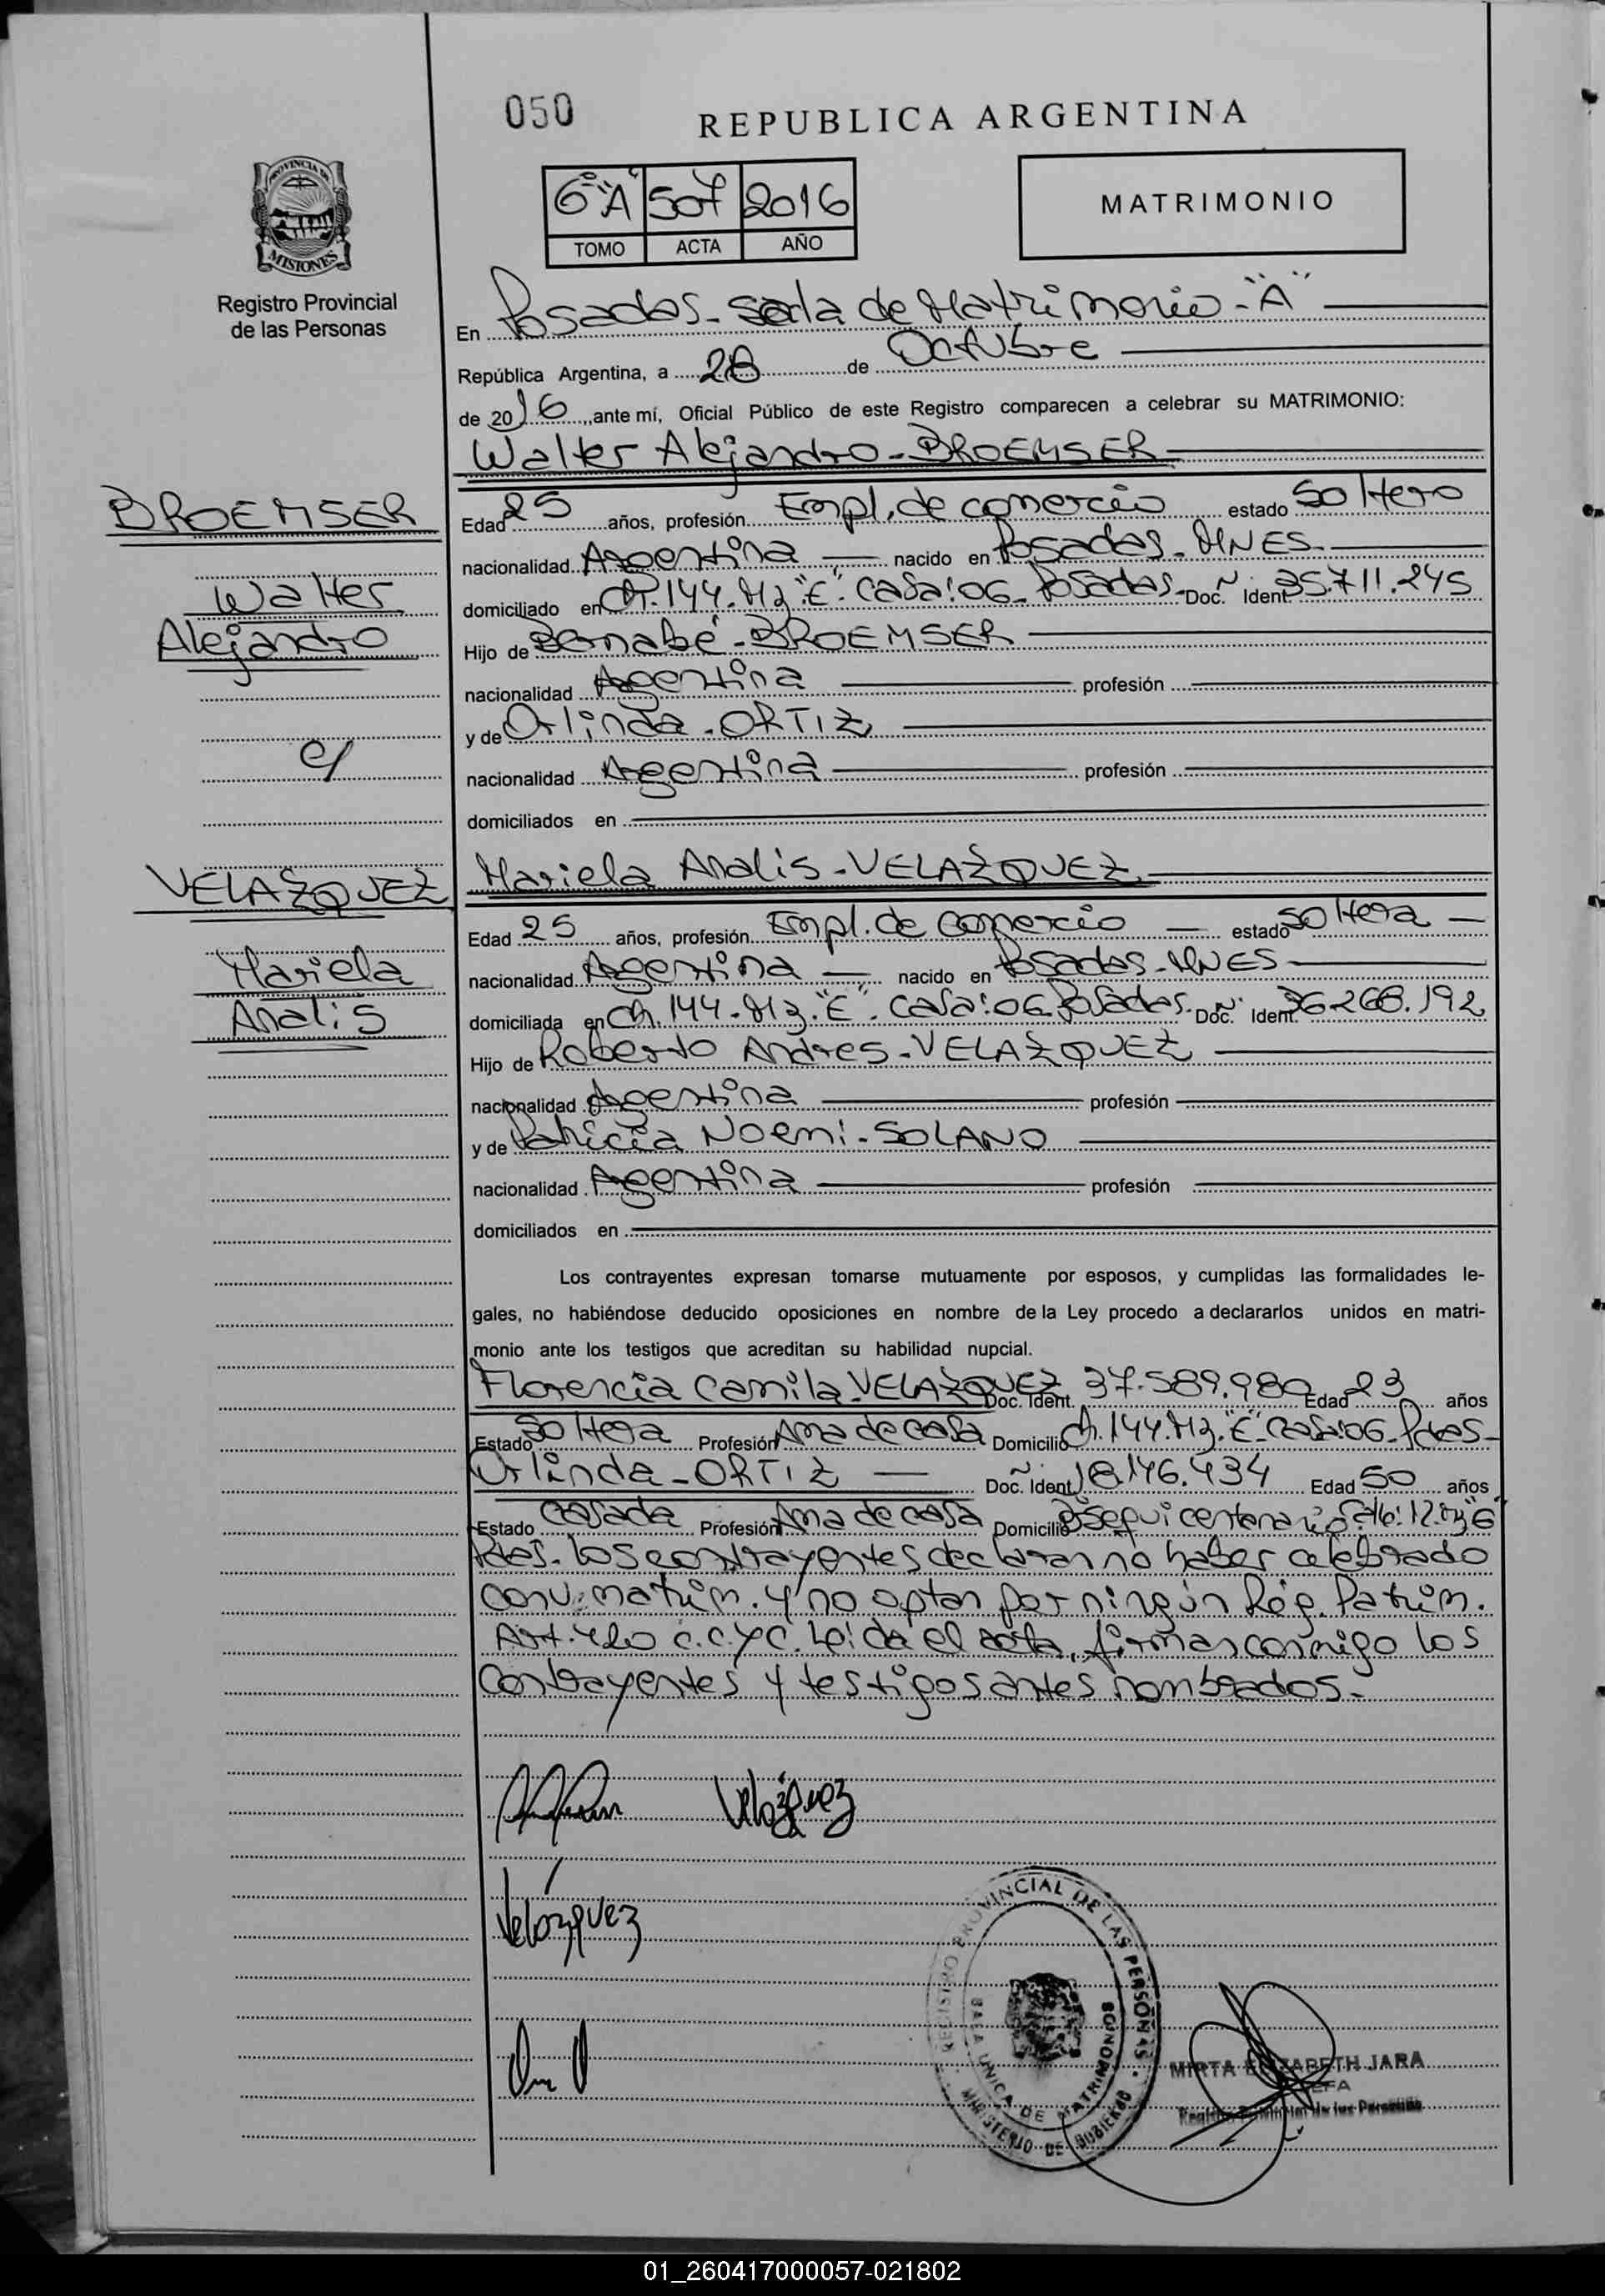 050
REPUBLICA ARGENTINA
6° "A" 507 2016
TOMO ACTA AÑO
MATRIMONIO
PROVINCIA DE
MISIONES
Registro Provincial
de las Personas
En Posadas - Sala de Matrimonio - "A"
República Argentina, a 28 de Octubre
de 2016, ante mí, Oficial Público de este Registro comparecen a celebrar su MATRIMONIO:
Walter Alejandro - BROEMSER
BROEMSER
Walter
Alejandro
c/
VELAZQUEZ
Mariela
Analis
Edad 25 años, profesión Empl. de comercio estado Soltero
nacionalidad Argentina nacido en Posadas - MNES.
domiciliado en Ch. 144. Mz "E". Casa: 06 - Posadas - Doc. Ident. 35.711.245
Hijo de Bernabé - BROEMSER
nacionalidad Argentina profesión
y de Orlinda - ORTIZ
nacionalidad Argentina profesión
domiciliados en
Mariela Analis - VELAZQUEZ
Edad 25 años, profesión Empl. de Comercio estado Soltera
nacionalidad Argentina nacido en Posadas - MNES
domiciliada en Ch. 144 - Mz. "E". Casa: 06 - Posadas. Doc. Ident. 36.268.192
Hijo de Roberto Andres - VELAZQUEZ
nacionalidad Argentina profesión
y de Patricia Noemi - SOLANO
nacionalidad Argentina profesión
domiciliados en
Los contrayentes expresan tomarse mutuamente por esposos, y cumplidas las formalidades le-
gales, no habiéndose deducido oposiciones en nombre de la Ley procedo a declararlos unidos en matri-
monio ante los testigos que acreditan su habilidad nupcial.
Florencia Camila VELAZQUEZ Doc. Ident. 37.589.980 Edad 23 años
Estado Soltera Profesión Ama de casa Domicilio Ch. 144. Mz. "E" Casa: 06 - Pdas -
Orlinda - ORTIZ Doc. Ident. 18.146.434 Edad 50 años
Estado Casada Profesión Ama de casa Domicilio
Pdas - Los contrayentes declaran no haber celebrado
conv. matrim. y no optan por ningún Rég. Patrim.
Art. 420 C.C.yC. Leida el acta, firman conmigo los
contrayentes y testigos antes nombrados.-
Velázquez
Velázquez
REGISTRO PROVINCIAL DE LAS PERSONAS
SALA UNICA DE MATRIMONIOS
MINISTERIO DE GOBIERNO
MIRTA ELIZABETH JARA
JEFA
Registro Provincial de las Personas
01_260417000057-021802